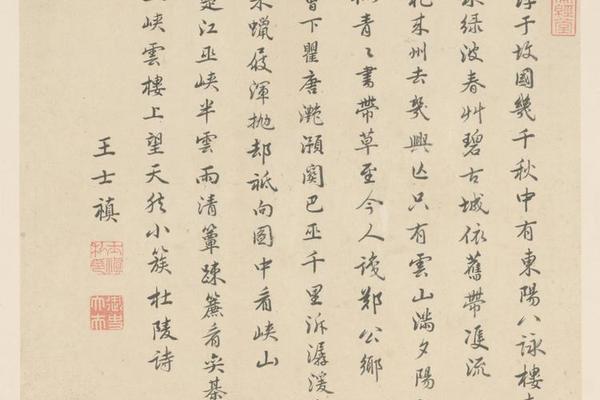 于故國幾千秋中有東陽八詠樓
綠波春艸碧古城依舊帶雙流
來州去幾興亡只有雲山滿夕陽
青〻書帶草至今人識鄭公鄉
曾下瞿唐灔澦關巴巫千里泝潺湲
來蠟屐渾抛却祗向圖中看峽山
楚江巫峽半雲雨清簟疎簾看奕棊
峽雲樓上望天然小簇杜陵詩
王士禛